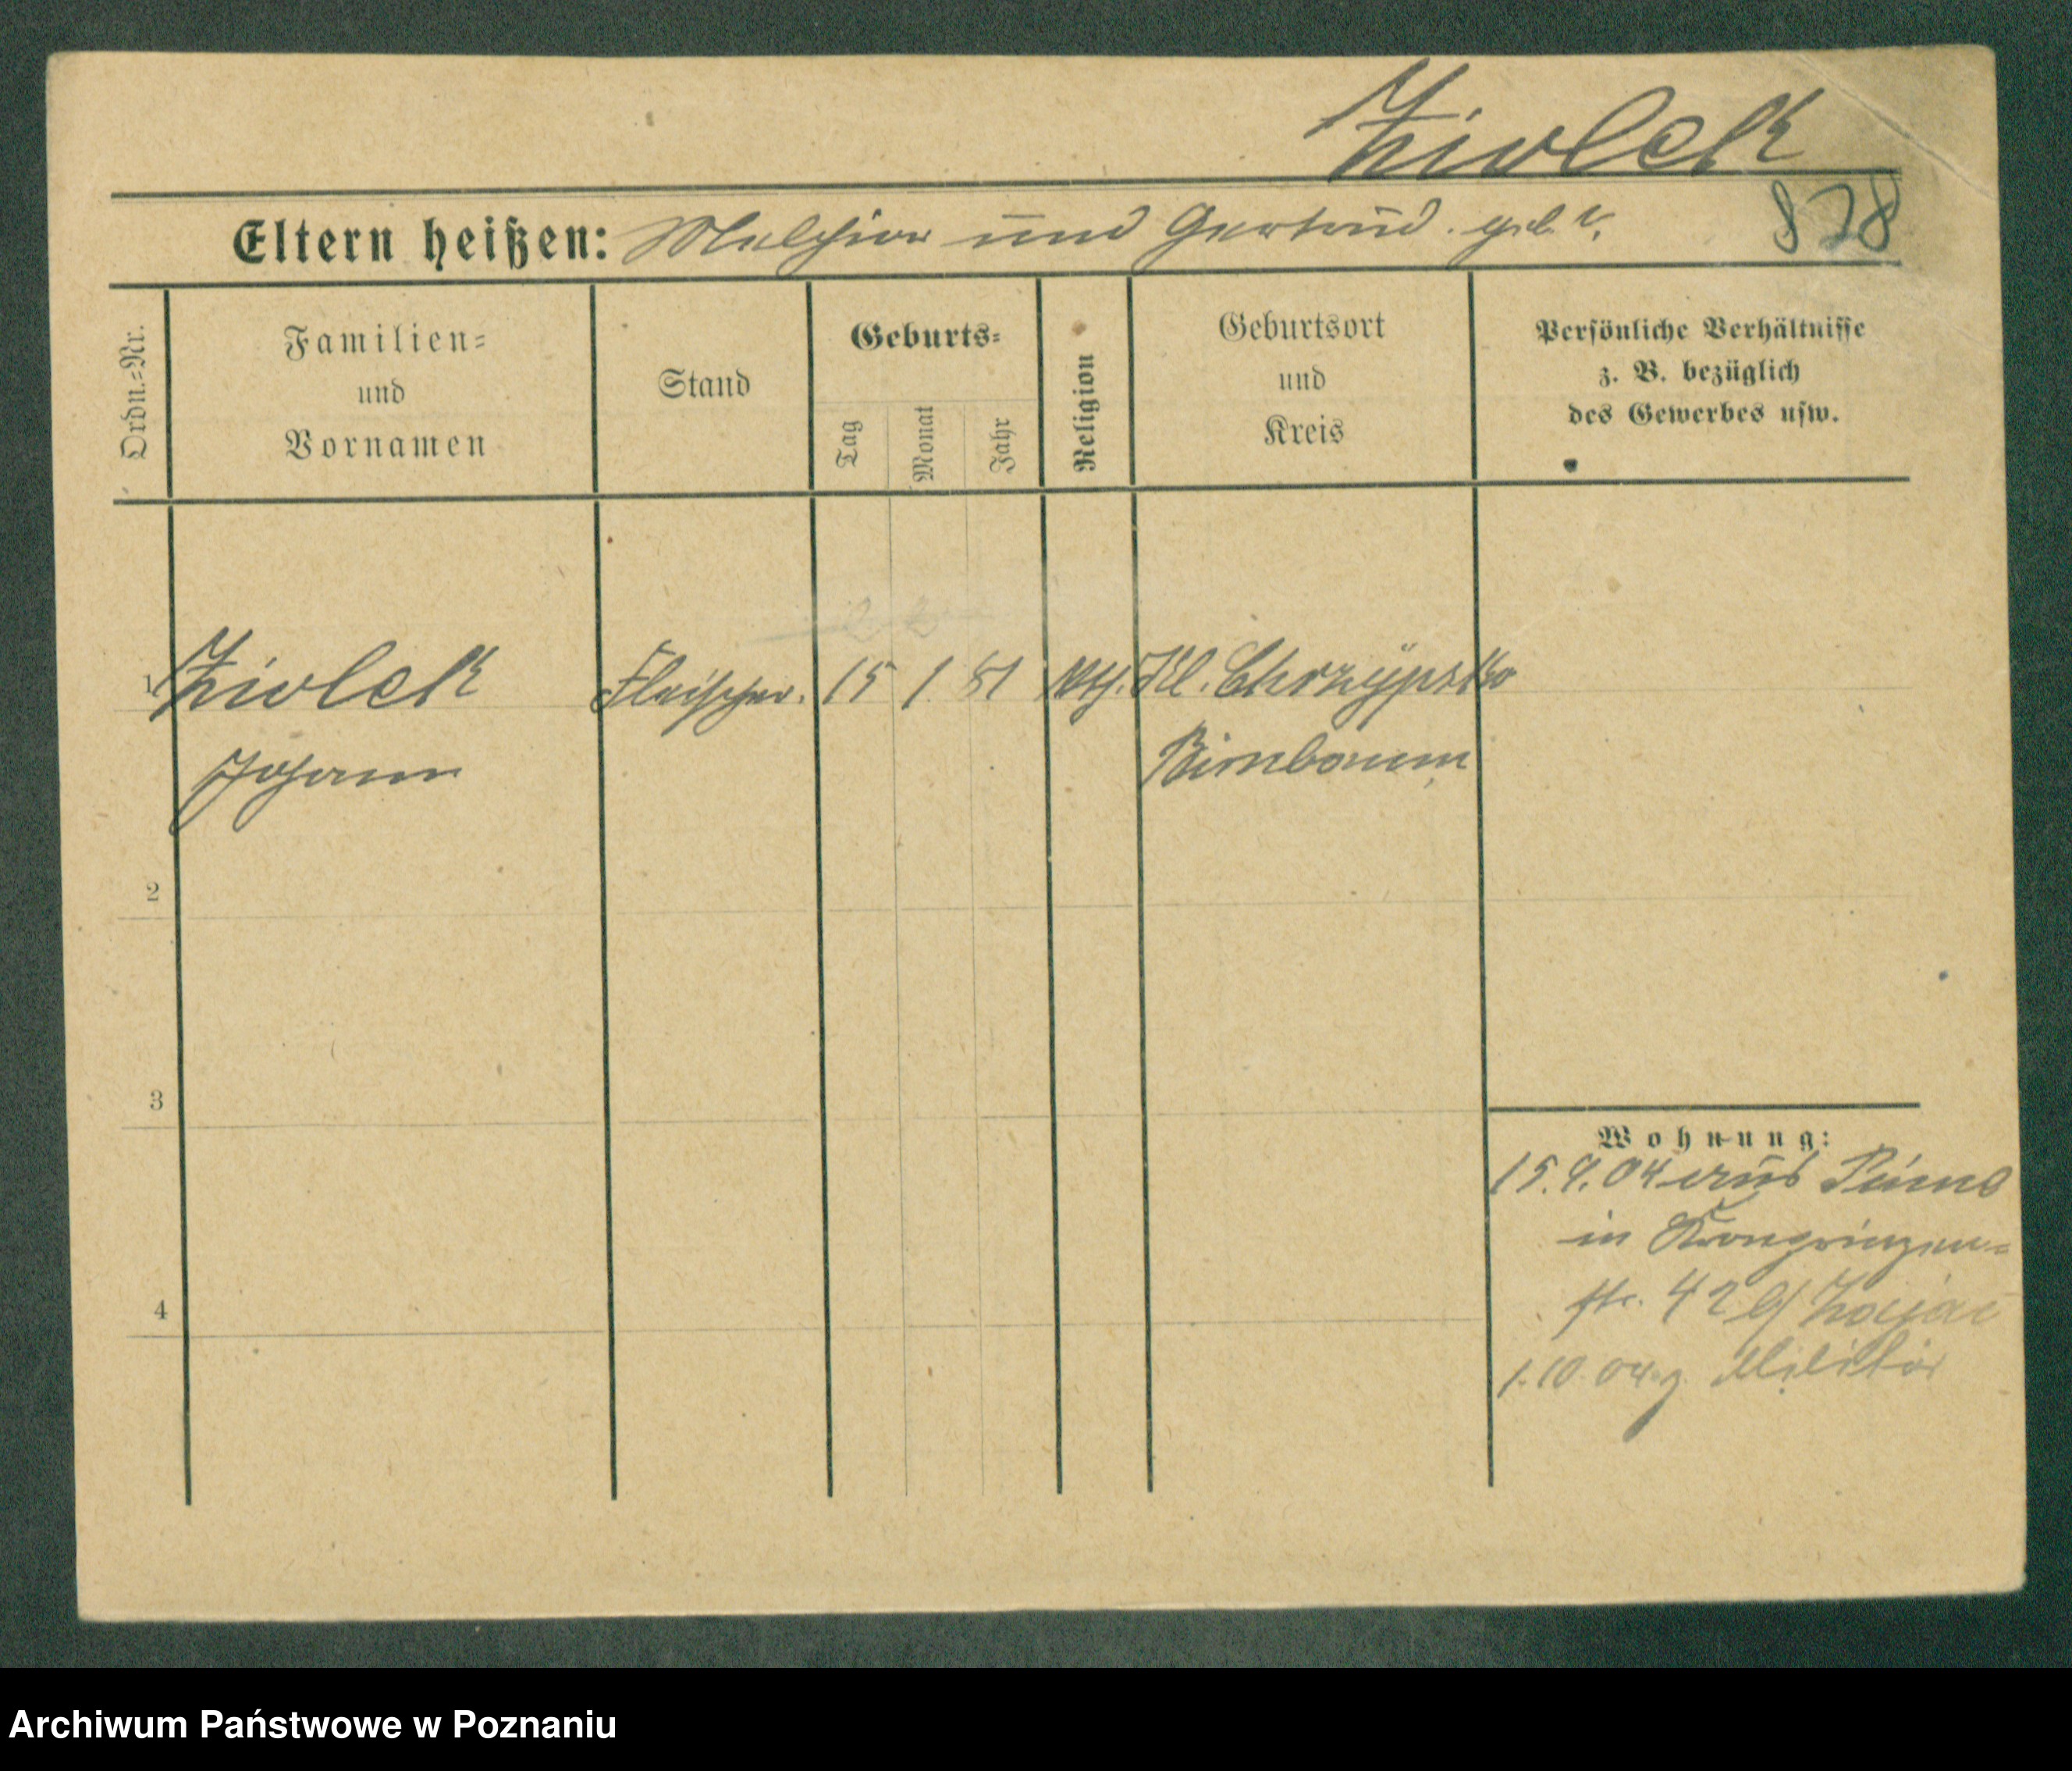 Ziolek
Eltern heißen: Melchior und Gertrud. geb. V.
878
Ordn.=Nr.
Familien=
und
Vornamen
Stand
Geburts=
Tag
Monat
Jahr
Religion
Geburtsort
und
Kreis
Persönliche Verhältnisse
z. B. bezüglich
des Gewerbes usw.
1 Ziolek Fleischer. 15 1. 81 kth. Kl. Chrzypsko
Johann Birnbaum
2
3
4
Wohnung:
15.4.04 aus Pinne
in Kronprinzen=
str. 42 b/ Zając
1.10.04 z. Militär
Archiwum Państwowe w Poznaniu